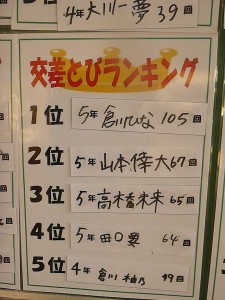 4年 大川一夢 39回
交差とびランキング
1位 5年 倉川ひな 105回
2位 5年 山本倖大 67回
3位 5年 高橋未来 65回
4位 5年 田口要 64回
5位 4年 倉川柚乃 49回